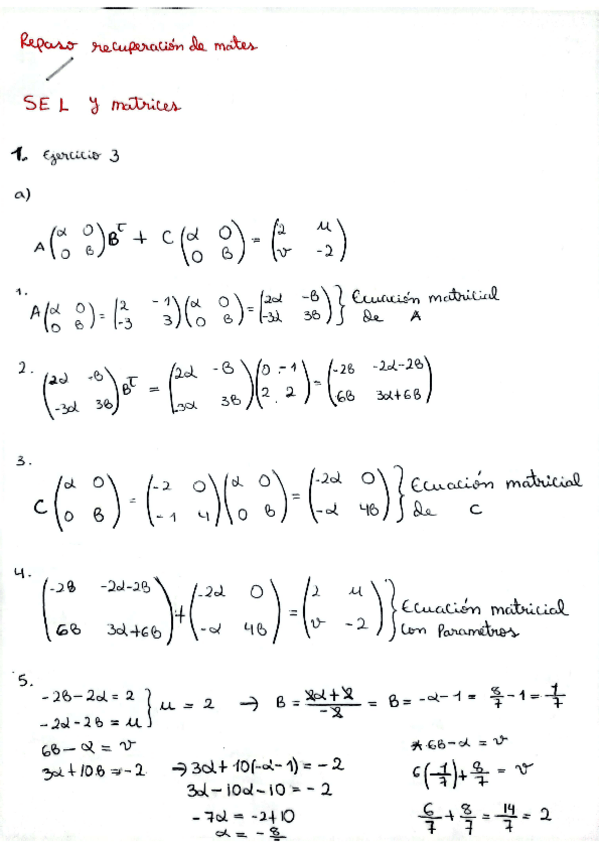 Repaso recuperación de mates
SEL y matrices
1. Ejercicio 3
a)
A (α 0 / 0 B) B^τ + C (α 0 / 0 B) = (2 μ / v -2)
1. A (α 0 / 0 B) = (2 -1 / -3 3) (α 0 / 0 B) = (2α -B / -3α 3B) } Ecuación matricial de A
2. (2α -B / -3α 3B) B^τ = (2α -B / -3α 3B) (0 -1 / 2 2) = (-2B -2α-2B / 6B 3α+6B)
3. C (α 0 / 0 B) = (-2 0 / -1 4) (α 0 / 0 B) = (-2α 0 / -α 4B) } Ecuación matricial de C
4. (-2B -2α-2B / 6B 3α+6B) + (-2α 0 / -α 4B) = (2 μ / v -2) } Ecuación matricial con Parametros
5.
-2B-2α = 2 } μ = 2 → B = 2α+2 / -2 = B = -α-1 = 8/7 - 1 = 1/7
-2α-2B = μ
6B-α = v
3α+10B = -2 → 3α+10(-α-1) = -2
3α-10α-10 = -2
-7α = -2+10
α = -8/7
* 6B-α = v
6(1/7) + 8/7 = v
6/7 + 8/7 = 14/7 = 2